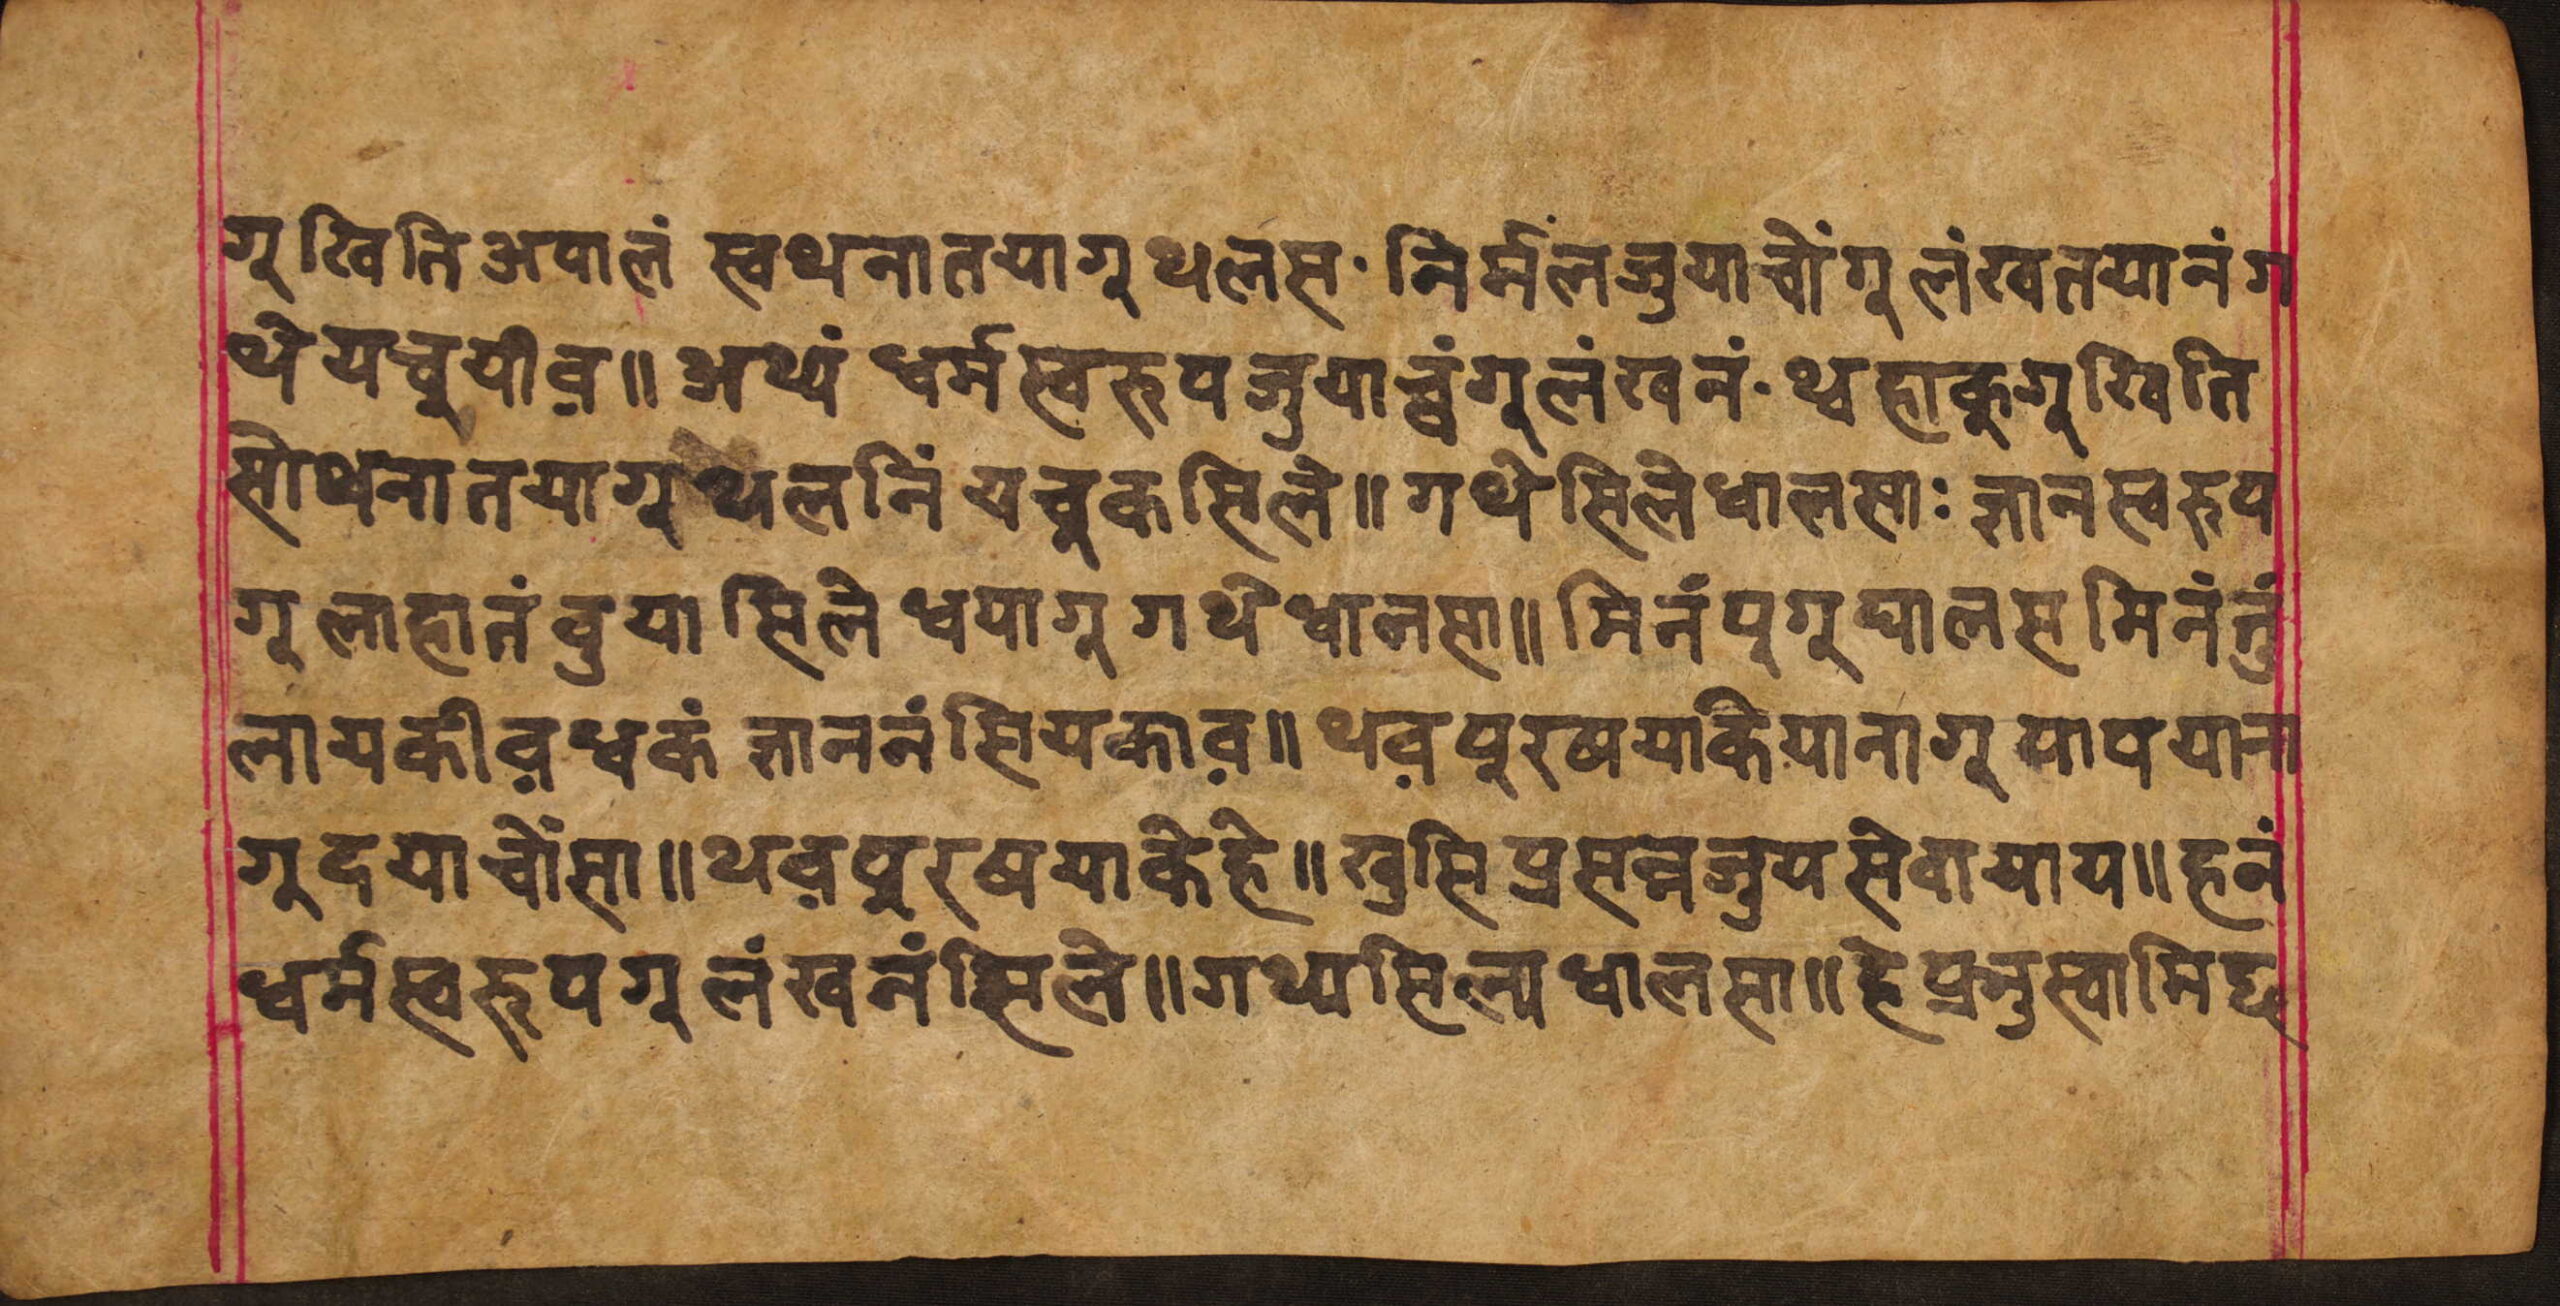 गू खिति अपालं स्वथनातयागू थलस · निर्मंल जुयाचोंगू लंखतयानं ग
थे यचूयीव़ ॥ अथ्यं धर्मस्वरुप जुयाच्वंगू लंखनं · थ्व हाकूगू खिति
सोथनातयागू थलनिं यचूक सिले ॥ गथे सिले धालसाः ज्ञानस्वरुप
गू लाहातं वुया सिले धयागू गथे धालसा ॥ मिनं पूगू घालस मिनंतुं
लायकीव़ थ्वकं ज्ञाननं सियकाव़ ॥ थव़ पूरषयाके यानागू पाप याना
गू दया चोंसा ॥ थव़ पूरषयाके हे ॥ खुसि प्रसन्न जुय सेवा याय ॥ हनं
धर्मस्वरुपगू लंखनं सिले ॥ गथ्य सिल्य धालसा ॥ हे प्रभुस्वामि छ